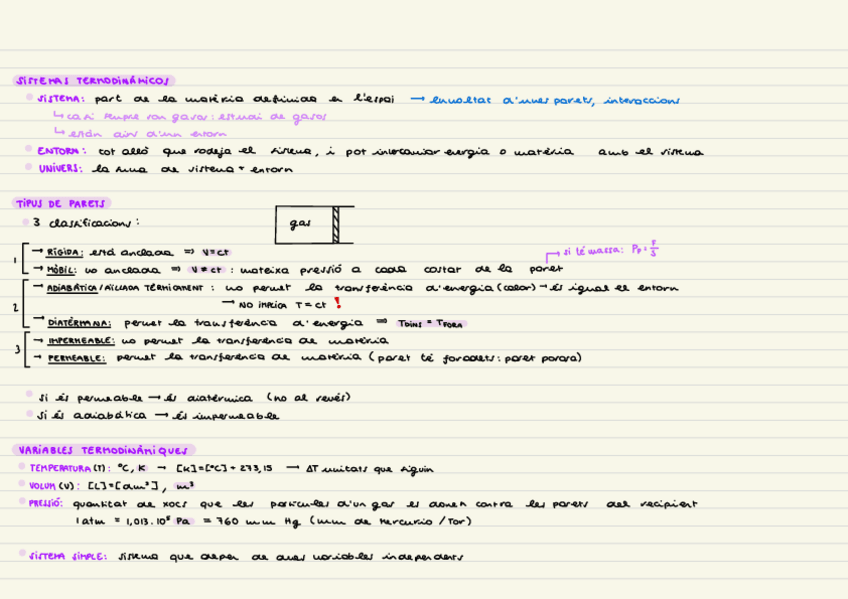 SISTEMAS TERMODINÀMICOS
SISTEMA: part de la matèria definida en l'espai → envoltat d'unes parets, interaccions
↳ casi sempre son gasos: estudi de gasos
↳ están dins d'un entorn
ENTORN: tot allò que rodeja el sistema, i pot intercanviar energia o matèria amb el sistema
UNIVERS: la suma de sistema + entorn
TIPUS DE PARETS
3 classificacions:
gas
1
→ RÍGIDA: está anclada ⇒ V=ct
→ si té massa: Pp = F/S
→ MÒBIL: no anclada ⇒ V ≠ ct : mateixa pressió a cada costat de la paret
2
→ ADIABÀTICA/AÏLLADA TÈRMICAMENT: no permet la transferència d'energia (calor) → és igual el entorn
→ NO IMPLICA T = ct !
→ DIATÈRMANA: permet la transferència d'energia ⇒ TDINS = TFORA
3
→ IMPERMEABLE: no permet la transferència de matèria
→ PERMEABLE: permet la transferència de matèria (paret té foradets: paret porosa)
si és permeable → és diatèrmica (no al revés)
si és adiabàtica → és impermeable
VARIABLES TERMODINÀMIQUES
TEMPERATURA (T): °C, K → [K]=[°C] + 273,15 → ΔT unitats que siguin
VOLUM (V): [L]=[dm³], m³
PRESSIÓ: quantitat de xocs que les partícules d'un gas es donen contra les parets del recipient
1 atm = 1,013·10⁵ Pa = 760 mm Hg (mm de Mercurio / Tor)
SISTEMA SIMPLE: sistema que depen de dues variables independents